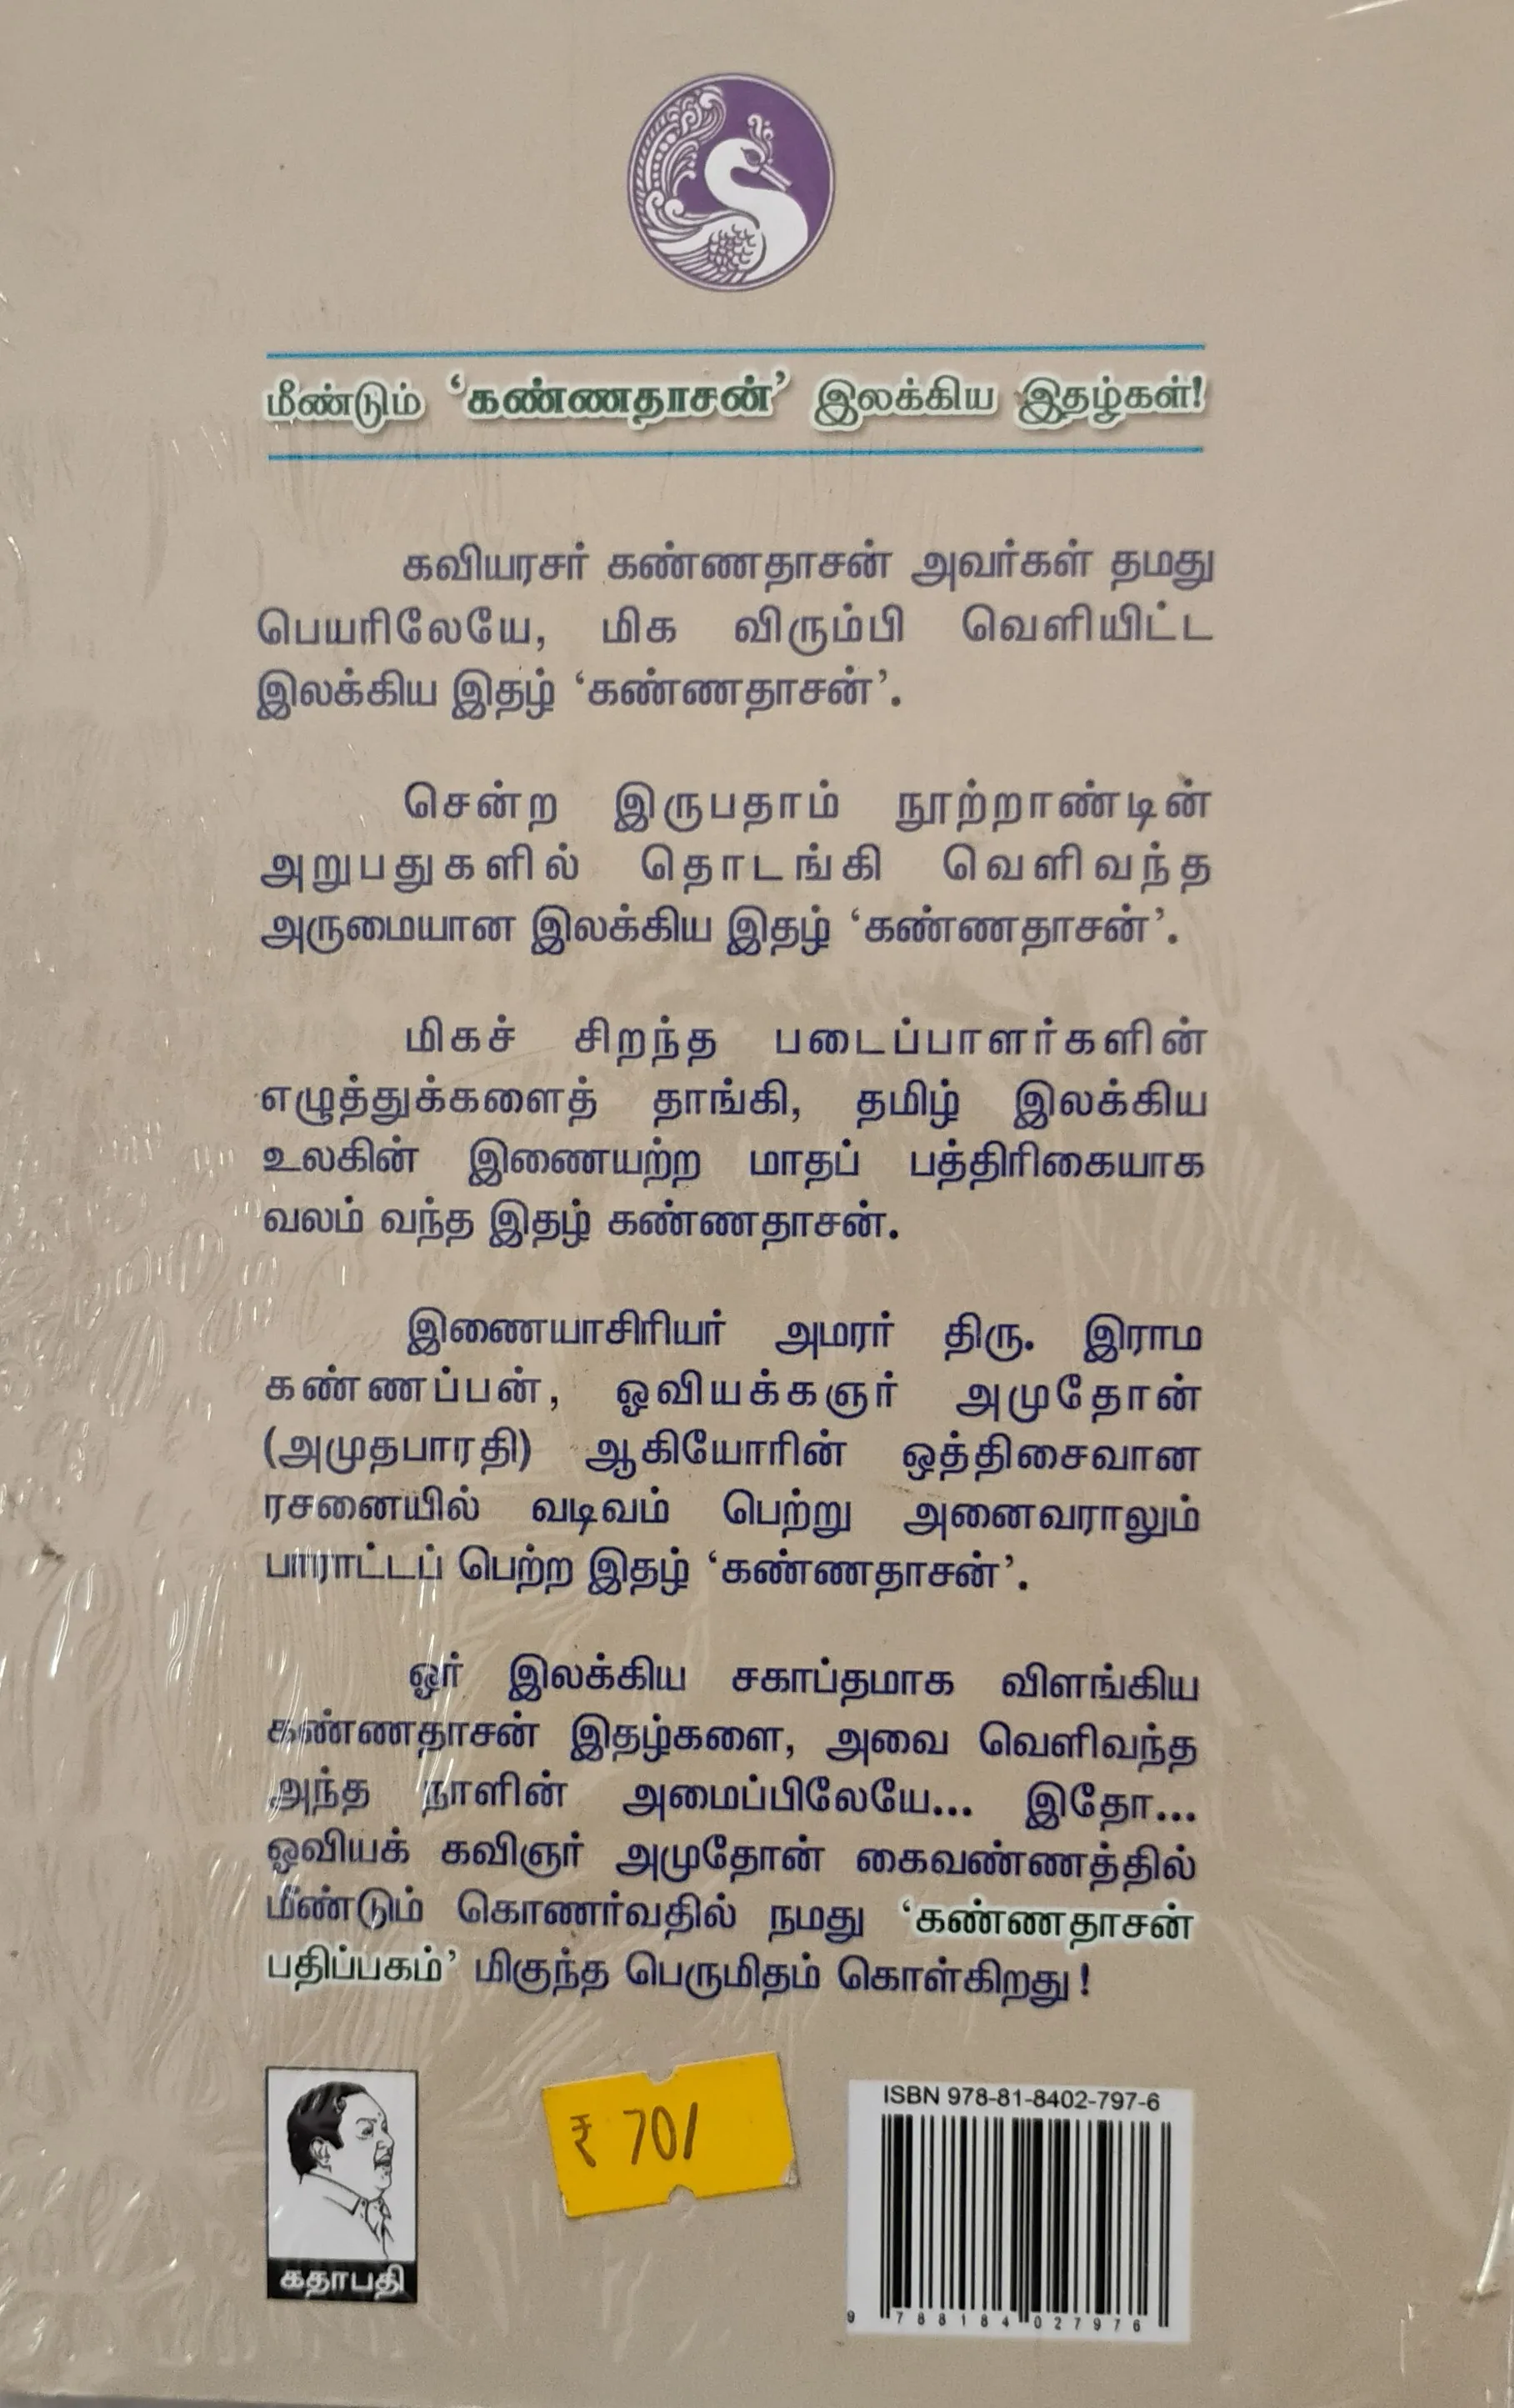 மீண்டும் ‘கண்ணதாசன்’ இலக்கிய இதழ்கள்!
கவியரசர் கண்ணதாசன் அவர்கள் தமது
பெயரிலேயே, மிக விரும்பி வெளியிட்ட
இலக்கிய இதழ் ‘கண்ணதாசன்’.
சென்ற இருபதாம் நூற்றாண்டின்
அறுபதுகளில் தொடங்கி வெளிவந்த
அருமையான இலக்கிய இதழ் ‘கண்ணதாசன்’.
மிகச் சிறந்த படைப்பாளர்களின்
எழுத்துக்களைத் தாங்கி, தமிழ் இலக்கிய
உலகின் இணையற்ற மாதப் பத்திரிகையாக
வலம் வந்த இதழ் கண்ணதாசன்.
இணையாசிரியர் அமரர் திரு. இராம
கண்ணப்பன், ஓவியக்கஞர் அமுதோன்
(அமுதபாரதி) ஆகியோரின் ஒத்திசைவான
ரசனையில் வடிவம் பெற்று அனைவராலும்
பாராட்டப் பெற்ற இதழ் ‘கண்ணதாசன்’.
ஓர் இலக்கிய சகாப்தமாக விளங்கிய
கண்ணதாசன் இதழ்களை, அவை வெளிவந்த
அந்த நாளின் அமைப்பிலேயே... இதோ...
ஓவியக் கவிஞர் அமுதோன் கைவண்ணத்தில்
மீண்டும் கொணர்வதில் நமது ‘கண்ணதாசன்
பதிப்பகம்’ மிகுந்த பெருமிதம் கொள்கிறது!
₹ 70/
ISBN 978-81-8402-797-6
கதாபதி
9 788184 027976